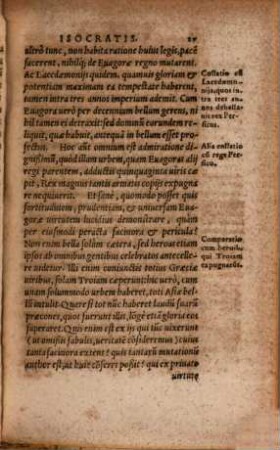 ISOCRATIS.
ultrò tunc, non habita ratione huius legis, pacē
facerent, nihilq́; de Euagoræ regno mutarent.
Ac Lacedæmonijs quidem, quamuis gloriam et
potentiam maximam ea tempestate haberent,
tamen intra tres annos imperium ademit. Cum
Euagora uerò per decennium bellum gerens, ni
hil tamen ei detraxit: sed dominū earundem re-
liquit, quæ habuit, antequā in bellum esset pro
fectus. Hoc aūt omnium est admiratione di-
gnissimū, quòd illum urbem, quam Euagor alij
regi parentem, adductis quinquaginta uiris
cepit, Rex magnus tantis armatū copijs expugna
re nequiuerit. Et sanè, quomodo posset quis
fortitudinem, prudentiam, & uniuersam Euago
ræ uirtutem lucidius demonstrare, quàm
per eiusmodi peracta facinora & pericula?
Non enim bella solùm cætera, sed heroum etiam
id ab omnibus gentibus celebratos antecelle-
re uidetur. Illi enim coniunctis totius Græciæ
uiribus, solam Troiam ceperunt: hic uerò, cum
unam solummodo urbem haberet, toti Asiæ bel-
lū intulit. Quare si tot nūc haberet laudū suarū
præcones, quot fuerunt illis, lōgè etiā gloria eos
superaret. Quis enim est ex ijs qui tūc uixerunt
(ut omissis fabulis, ueritatē cōsideremus) cuius
tanta facinora extent? quis tantarū mutationū
author est, ut huic cōferri possit? qui ex priuato
uirtute
Cessatio est
Lacedæmo-
nijs, quos in
tra tres an-
nos debella-
uit rex Per-
sicus.
Alia cessatio
est rege Per-
sico.
Comparatio
cum heroibus,
qui Troiam
expugnarūt.